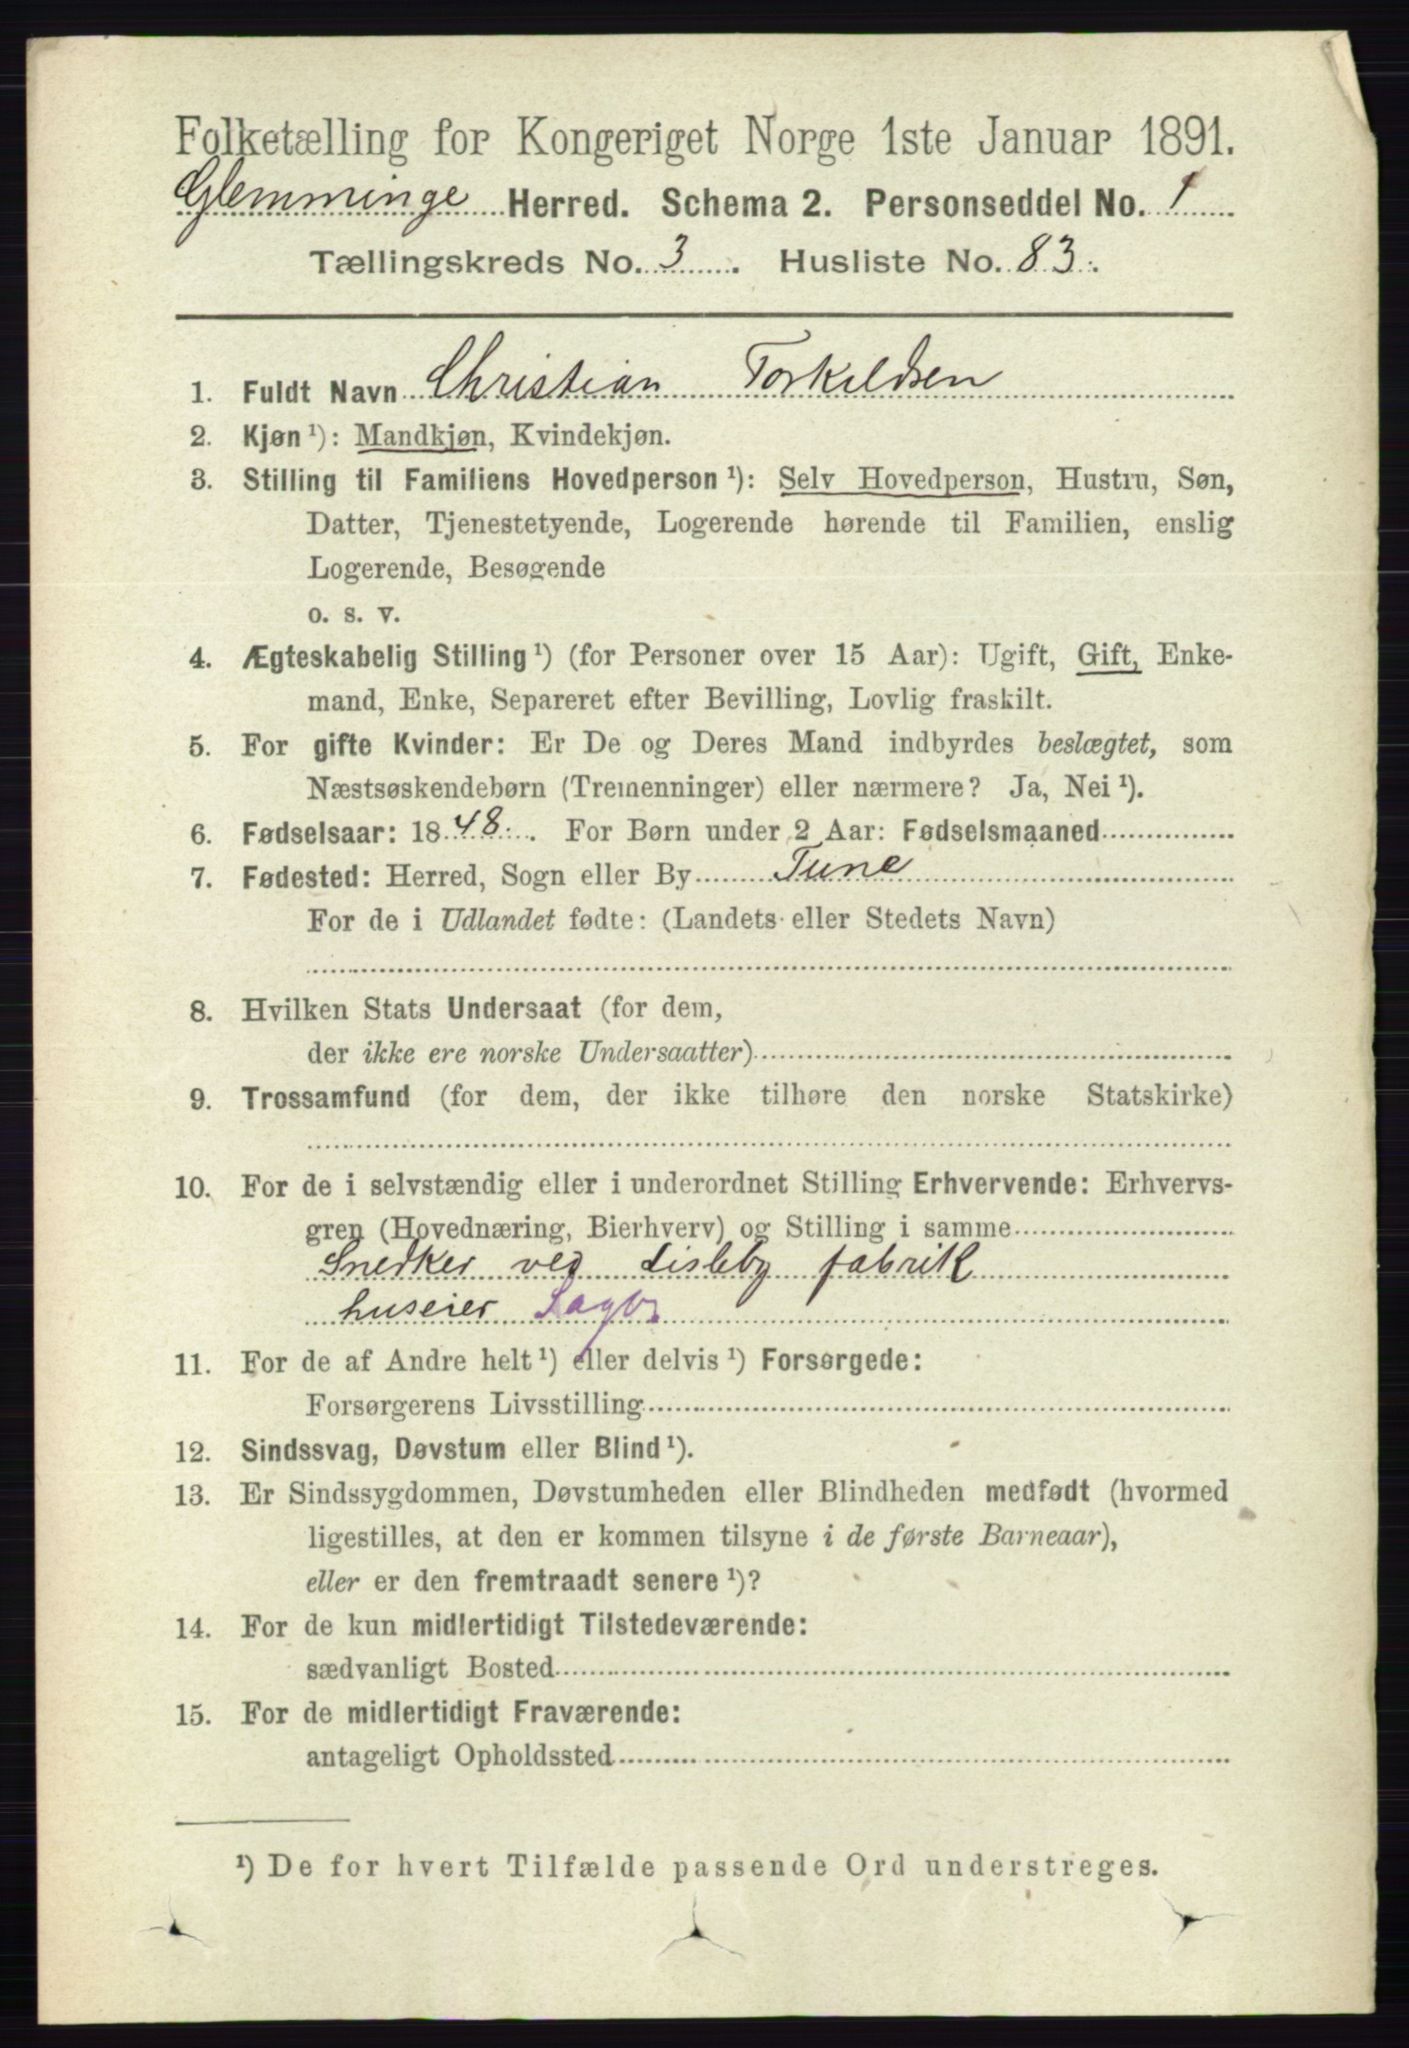 Folketælling for Kongeriget Norge 1ste Januar 1891.
Glemminge Herred. Schema 2. Personseddel No. 1
Tællingskreds No. 3. Husliste No. 83.
1. Fuldt Navn Christian Torkildsen
2. Kjøn ¹): Mandkjøn, Kvindekjøn.
3. Stilling til Familiens Hovedperson ¹): Selv Hovedperson, Hustru, Søn,
Datter, Tjenestetyende, Logerende hørende til Familien, enslig
Logerende, Besøgende
o. s. v.
4. Ægteskabelig Stilling ¹) (for Personer over 15 Aar): Ugift, Gift, Enke-
mand, Enke, Separeret efter Bevilling, Lovlig fraskilt.
5. For gifte Kvinder: Er De og Deres Mand indbyrdes beslægtet, som
Næstsøskendebørn (Tremenninger) eller nærmere? Ja, Nei ¹).
6. Fødselsaar: 1848. For Børn under 2 Aar: Fødselsmaaned
7. Fødested: Herred, Sogn eller By Tune
For de i Udlandet fødte: (Landets eller Stedets Navn)
8. Hvilken Stats Undersaat (for dem,
der ikke ere norske Undersaatter)
9. Trossamfund (for dem, der ikke tilhøre den norske Statskirke)
10. For de i selvstændig eller i underordnet Stilling Erhvervende: Erhvervs-
gren (Hovednæring, Bierhverv) og Stilling i samme
Snedker ved Lisleby fabrik
huseier Sagbr
11. For de af Andre helt ¹) eller delvis ¹) Forsørgede:
Forsørgerens Livsstilling
12. Sindssvag, Døvstum eller Blind ¹).
13. Er Sindssygdommen, Døvstumheden eller Blindheden medfødt (hvormed
ligestilles, at den er kommen tilsyne i de første Barneaar),
eller er den fremtraadt senere ¹)?
14. For de kun midlertidigt Tilstedeværende:
sædvanligt Bosted
15. For de midlertidigt Fraværende:
antageligt Opholdssted
¹) De for hvert Tilfælde passende Ord understreges.